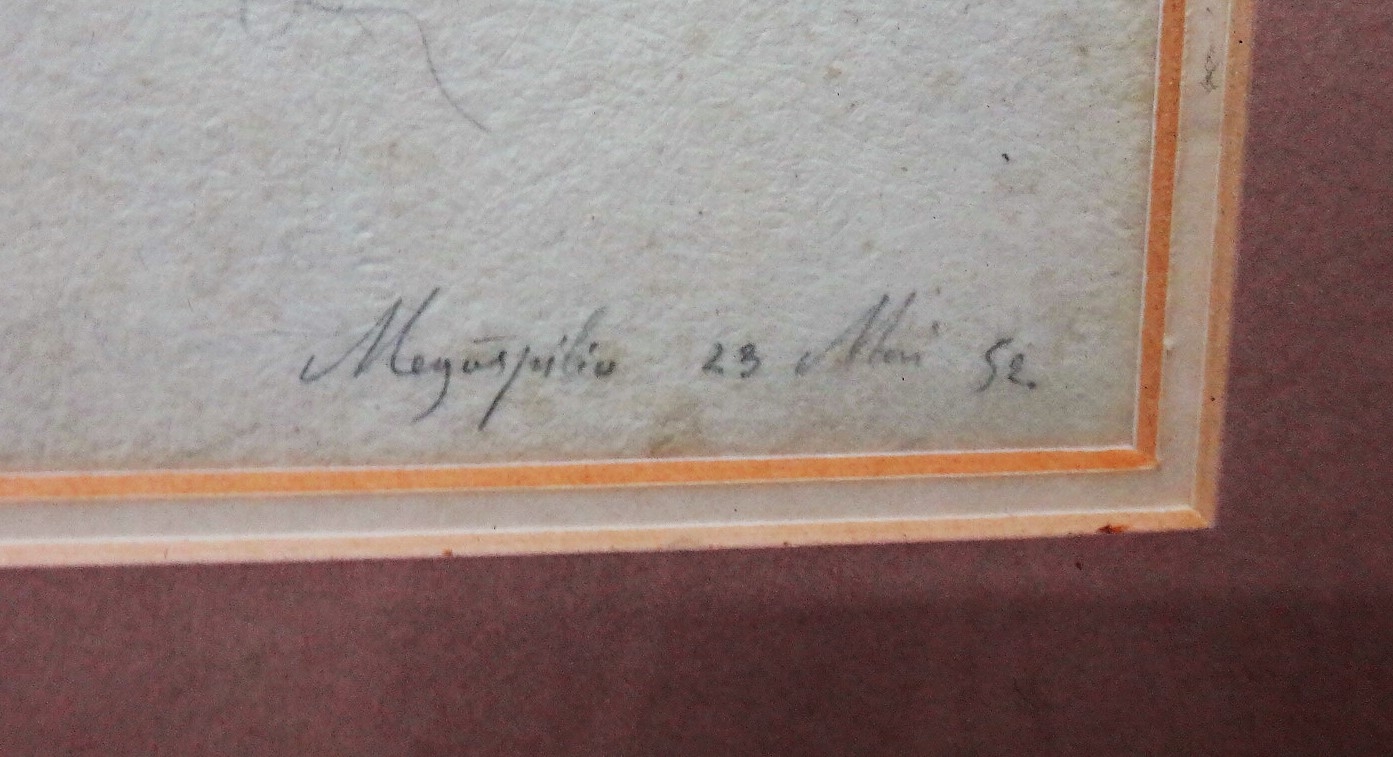 Megaspilio 23 Mai 52.